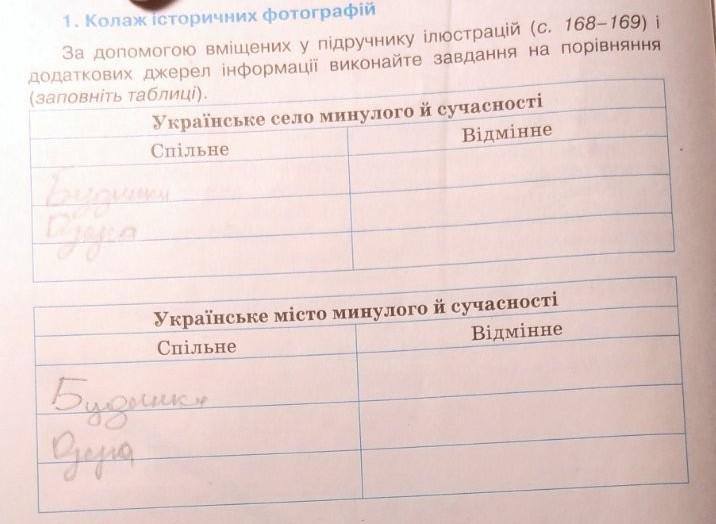 1. Колаж історичних фотографій
За допомогою вміщених у підручнику ілюстрацій (с. 168–169) і
додаткових джерел інформації виконайте завдання на порівняння
(заповніть таблиці).
Українське село минулого й сучасності
Спільне
Відмінне
Будинки
Озера
Українське місто минулого й сучасності
Спільне
Відмінне
Будинки
Озера